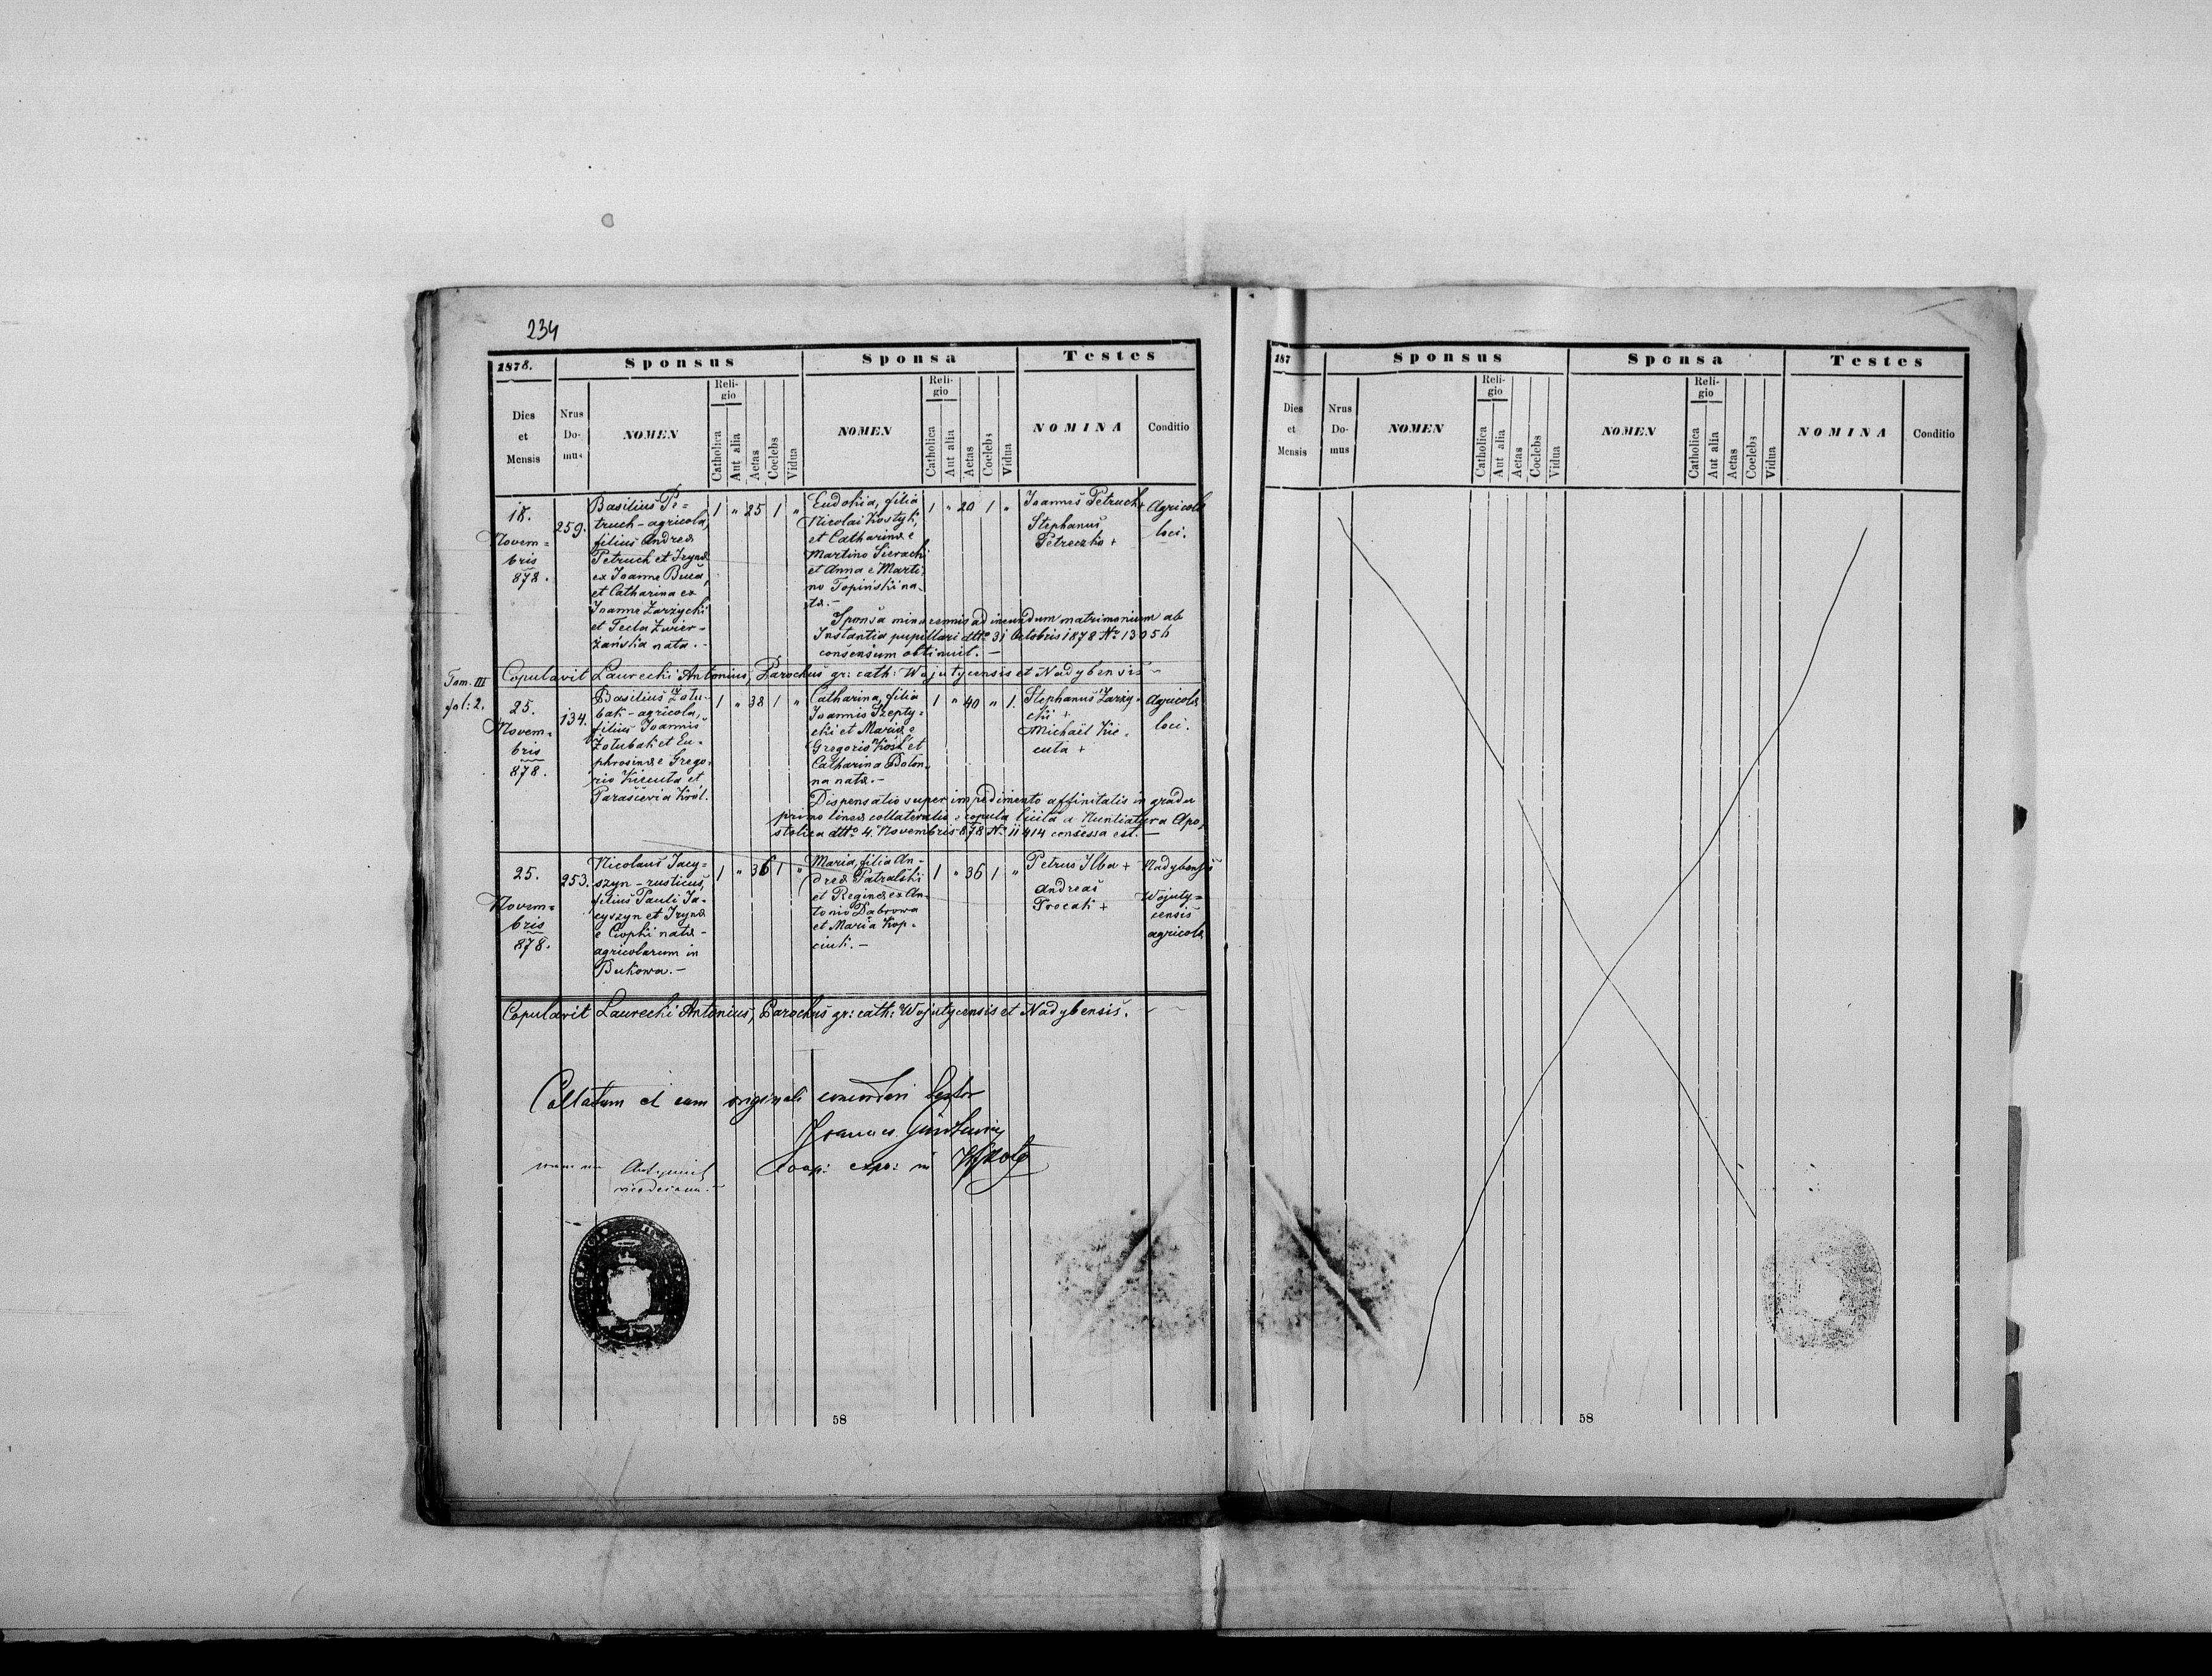 234
1878.
Sponsus
Sponsa
Testes
Dies
et
Mensis
Nrus
Do-
mus
NOMEN
Reli-
gio
Catholica
Aut alia
Aetas
Coelebs
Vidua
NOMEN
Reli-
gio
Catholica
Aut alia
Aetas
Coelebs
Vidua
NOMINA
Conditio
18.
Novem=
bris
878.
259.
Basilius Pe=
truch - agricola,
filius Andreæ
Petruch et Irynæ
ex Joanne Buča,
et Catharina ex
Joanne Zarzycki
et Tecla Zwier-
żańska nata. -
1 " 25 1 "
Eudokia, filia
Nicolai Kostyk,
et Catharinæ e
Martino Sieracki
et Anna e Marti-
no Topiński na-
tæ. -
1 " 20 1 "
Joannes Petruch +
Stephanus
Petreczko +
Agricolæ
loci.
Sponsa minorennis ad ineundum matrimonium ab
Instantia pupillari dtto 31 Octobris 1878 No 13056
consensum obtinuit. -
Copulavit Laurecki Antonius, Parochus gr: cath: Wojutycensis et Nadybensis
Tom. III
fol: 2.
25.
Novem=
bris
878.
134.
Basilius Zołu-
bak - agricola,
filius Joannis
Zołubak et Eu-
phrosinæ e Grego-
rio Kicuta et
Parascevia Król.
1 " 38 1 "
Catharina, filia
Joannis Szepty-
cki et Mariæ e
Gregorio Kość et
Catharina Bolon-
na natæ. -
1 " 40 " 1.
Stephanus Zarzy-
cki +
Michaël Kic-
cuta +
Agricolæ
loci.
Dispensatio super impedimento affinitatis in gradu
primo lineæ collateralis e copula licita a Nuntiatura Apo-
stolica dtto 4. Novembris 878 No 11414 concessa est. -
25.
Novem=
bris
878.
253.
Nicolaus Jacy=
szyn - rusticus,
filius Pauli Ja-
cyszyn et Irynæ
e Ciopki natæ -
agricolarum in
Bukowa. -
1 " 36 1 "
Maria, filia An-
dreæ Patralski
et Reginæ ex An-
tonio Dąbrowa
et Maria Kop-
ciuk. -
1 " 36 1 "
Petrus Ilba +
Andreas
Procak +
Nadybensis
Wojuty=
censis
agricolæ
Copulavit Laurecki Antonius, Parochus gr: cath: Wojutycensis et Nadybensis.
Collatum et cum originali
Joannes
coop: expo: in
58
187
Sponsus
Sponsa
Testes
Dies
et
Mensis
Nrus
Do-
mus
NOMEN
Reli-
gio
Catholica
Aut alia
Aetas
Coelebs
Vidua
NOMEN
Reli-
gio
Catholica
Aut alia
Aetas
Coelebs
Vidua
NOMINA
Conditio
58